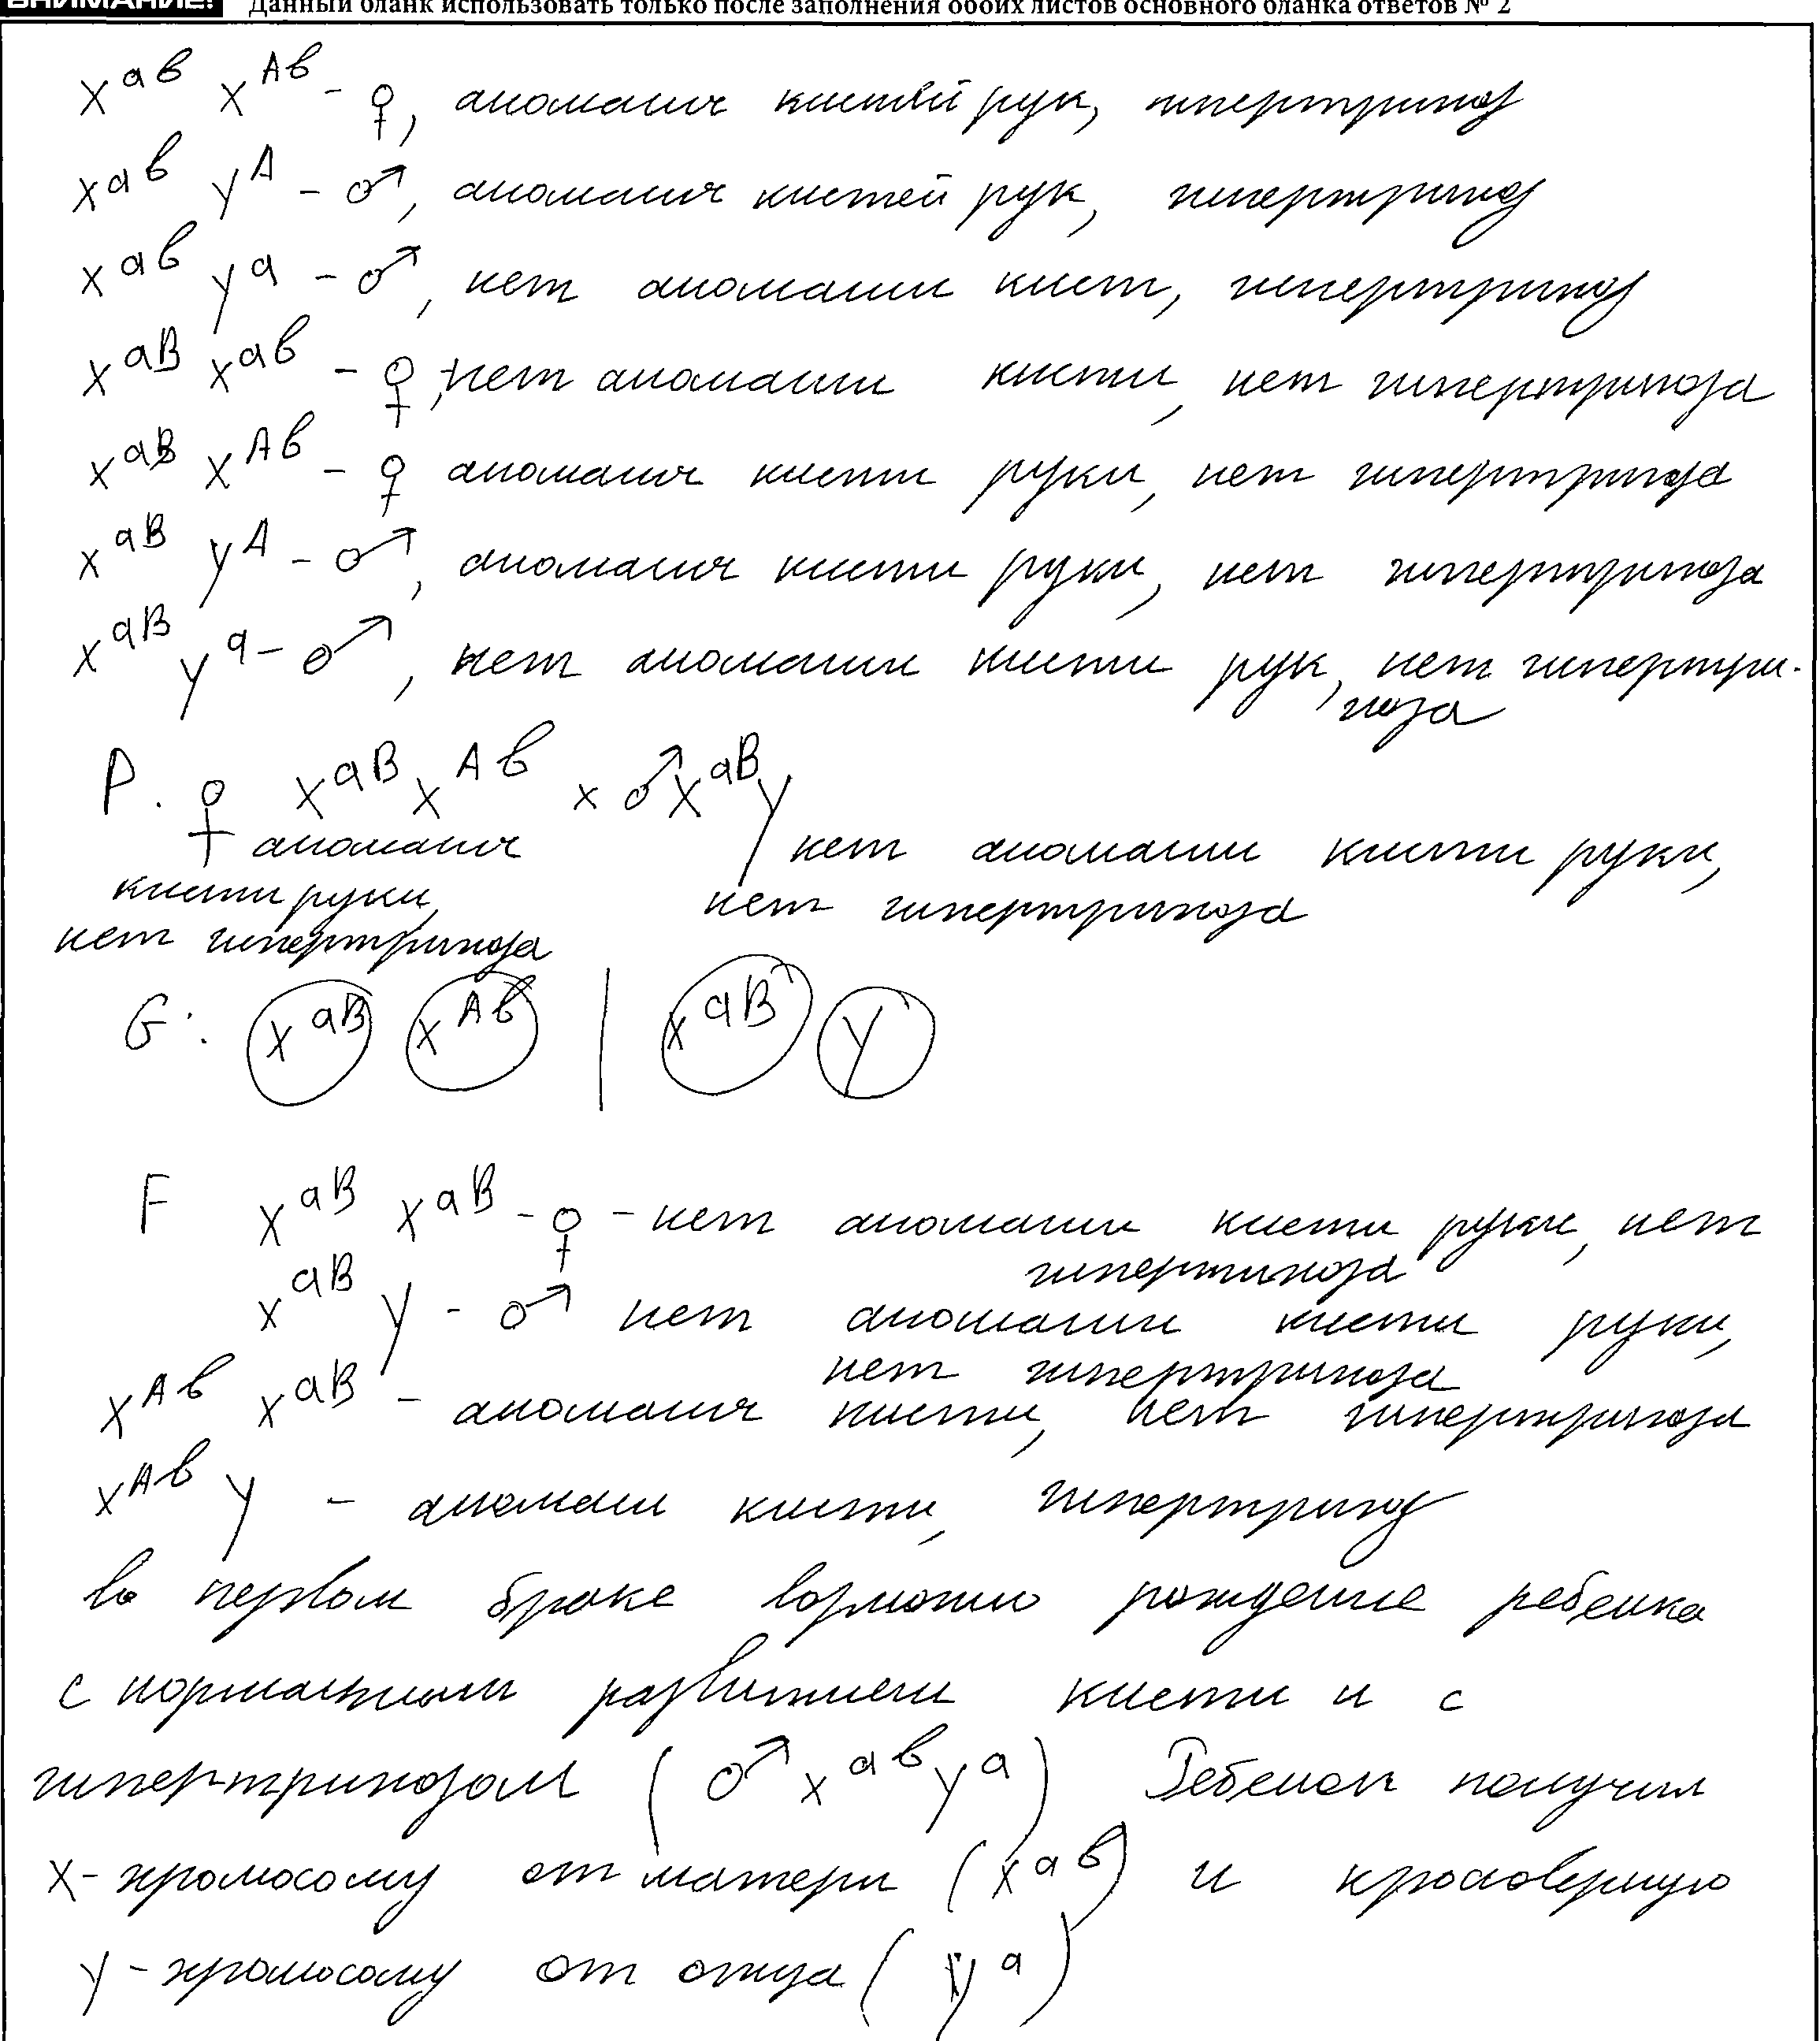 ВНИМАНИЕ! Данный бланк использовать только после заполнения обоих листов основного бланка ответов № 2
X^ab X^Ab - ♀, аномалия кистей рук, гипертрихоз
X^ab Y^A - ♂, аномалия кистей рук, гипертрихоз
X^ab Y^a - ♂, нет аномалии кист, гипертрихоз
X^aB X^ab - ♀, нет аномалии кисти, нет гипертрихоза
X^aB X^Ab - ♀ аномалия кисти руки, нет гипертрихоза
X^aB Y^A - ♂, аномалия кисти руки, нет гипертрихоза
X^aB Y^a - ♂, нет аномалии кисти рук, нет гипертри-
хоза
P. ♀ X^aB X^Ab x ♂ X^aB Y
аномалия нет аномалии кисти руки,
кисти руки, нет гипертрихоза
нет гипертрихоза
G: X^aB X^Ab | X^aB Y
F X^aB X^aB - ♀ - нет аномалии кисти руки, нет
гипертихоза
X^aB Y - ♂ нет аномалии кисти руки,
нет гипертрихоза
X^Ab X^aB - аномалия кисти, нет гипертрихоза
X^Ab Y - аномали кисти, гипертрихоз
во первом браке возможно рождение ребенка
с нормальным развитием кисти и с
гипертрихозом ( ♂ X^ab Y^a ) Ребенок получил
X-хромосому от матери ( X^ab ) и кроссоверную
Y-хромосому от отца ( Y^a )